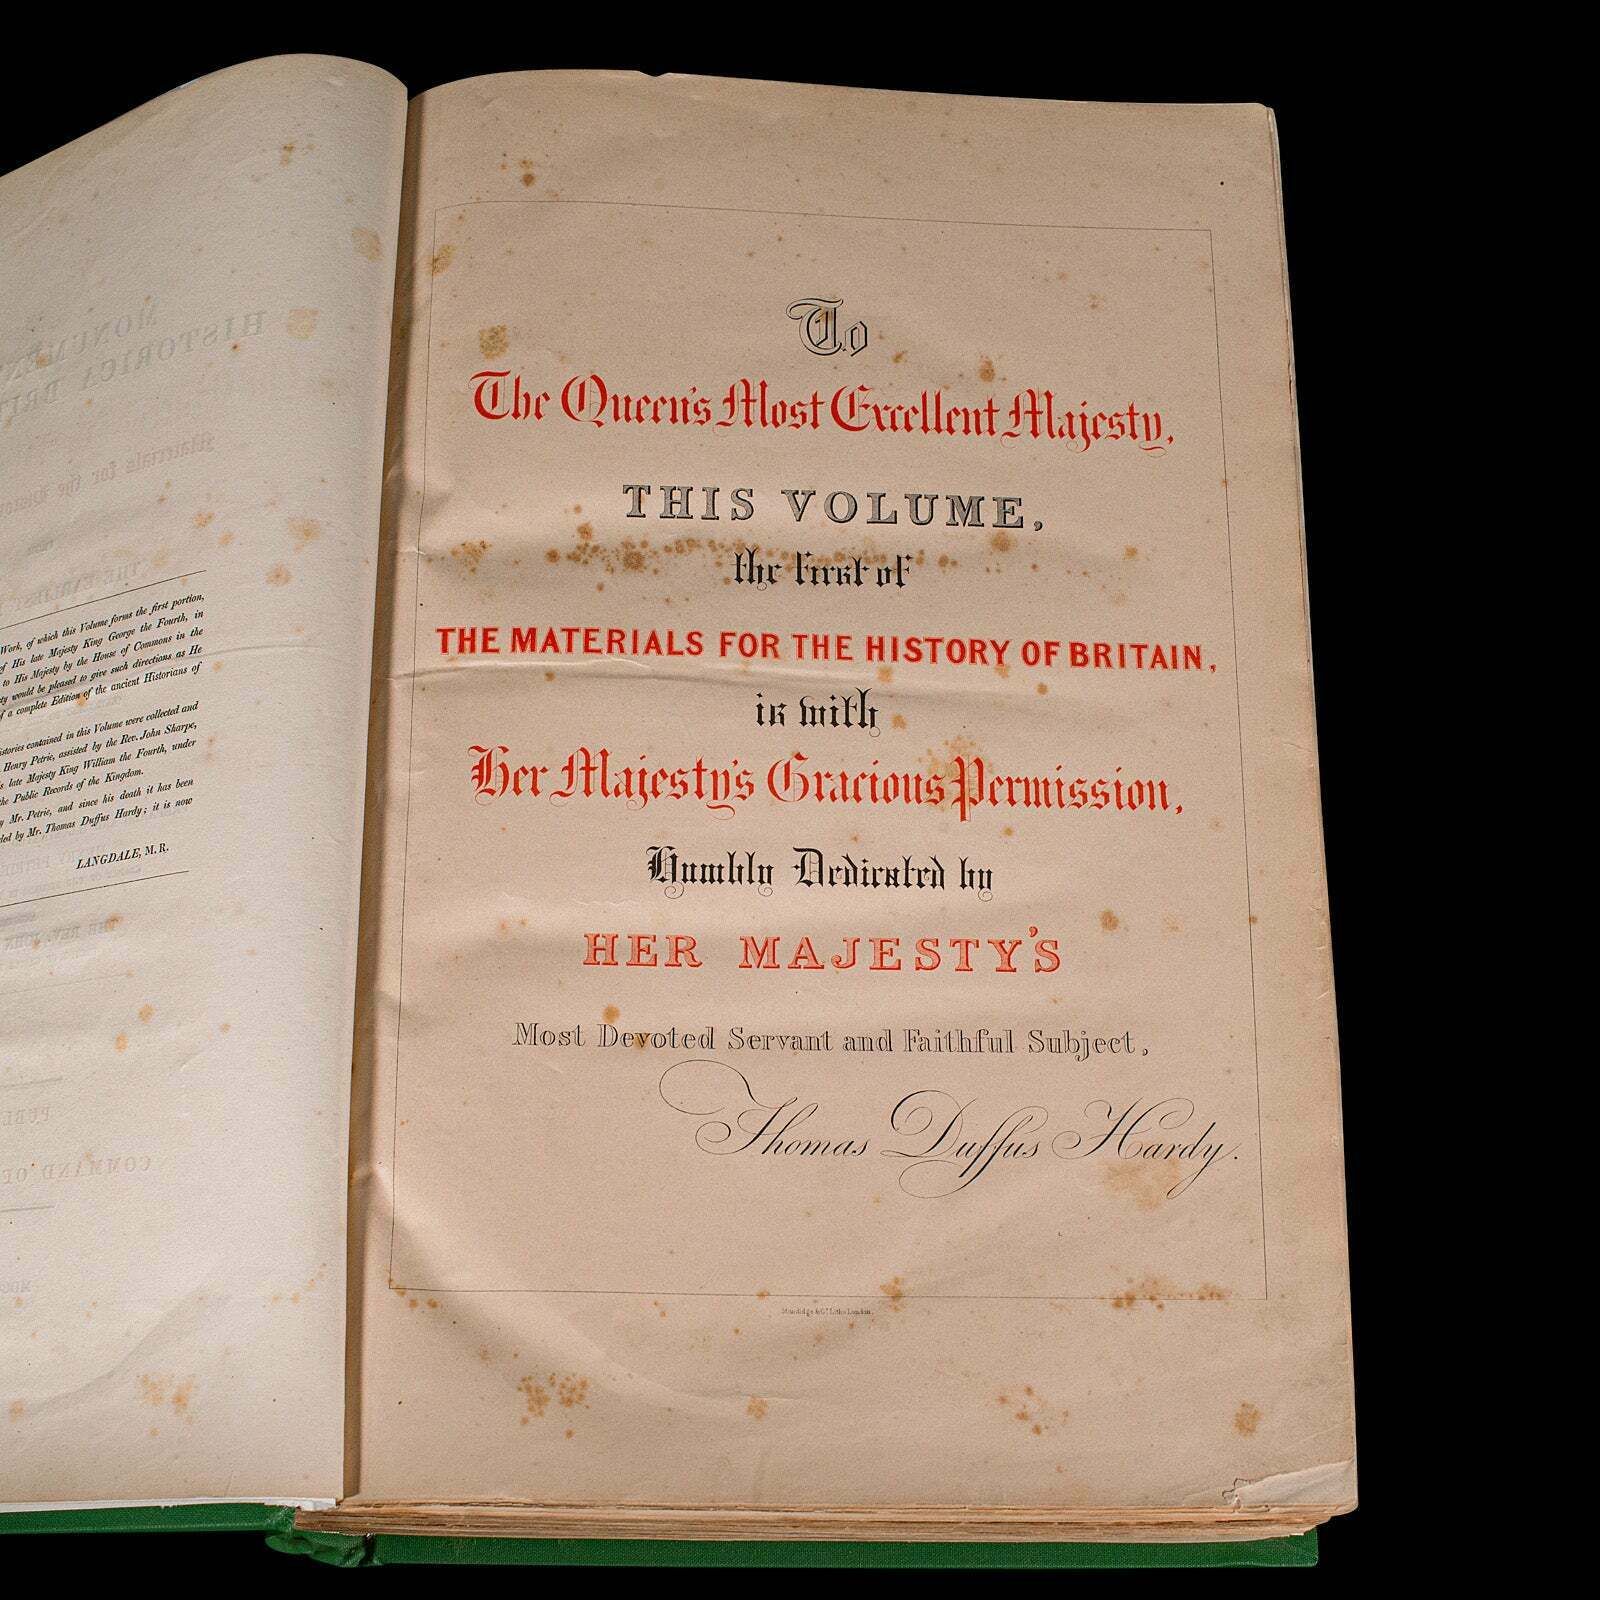 Work, of which this Volume forms the first portion,
of His late Majesty King George the Fourth, in
to His Majesty by the House of Commons in the
would be pleased to give such directions as He
of a complete Edition of the ancient Historians of
contained in this Volume were collected and
Henry Petrie, assisted by the Rev. John Sharpe,
late Majesty King William the Fourth, under
the Public Records of the Kingdom.
Mr. Petrie, and since his death it has been
by Mr. Thomas Duffus Hardy; it is now
LANGDALE, M. R.
To
The Queen's Most Excellent Majesty,
THIS VOLUME,
the first of
THE MATERIALS FOR THE HISTORY OF BRITAIN,
is with
Her Majesty's Gracious Permission,
Humbly Dedicated by
HER MAJESTY'S
Most Devoted Servant and Faithful Subject,
Thomas Duffus Hardy.
Standidge & Co. Litho London.